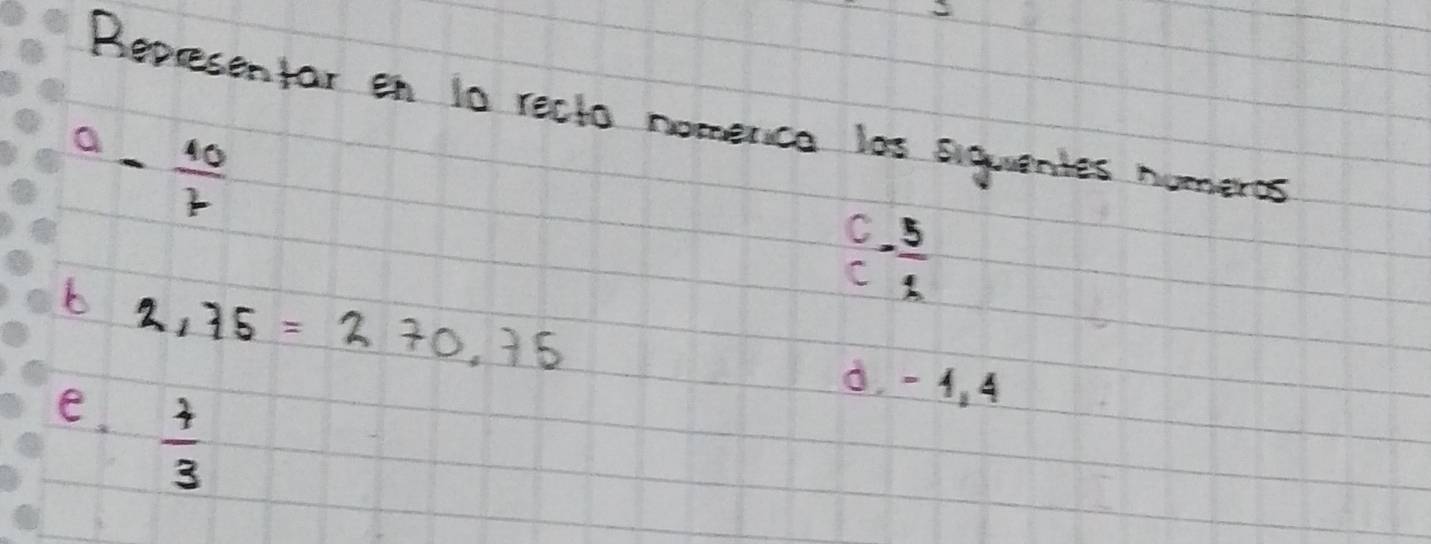 Representar en la recta numerica los siguientes numeros
a - 10/7
c - 5/2
c
b 2,75 = 2 + 0,75
d. - 1,4
e. 7/3